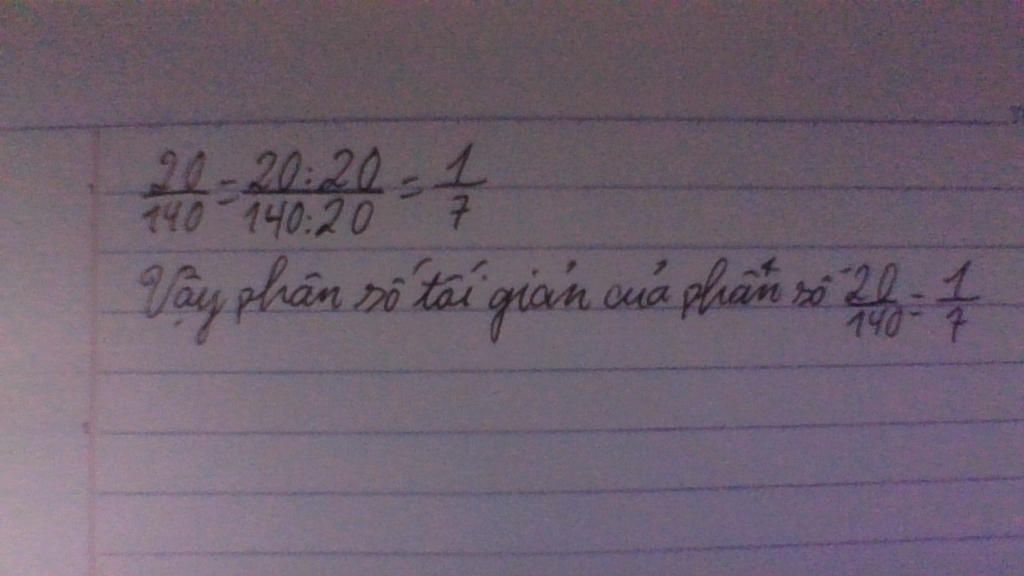 20/140 = 20:20/140:20 = 1/7
Vậy phân số tối giản của phân số 20/140 = 1/7